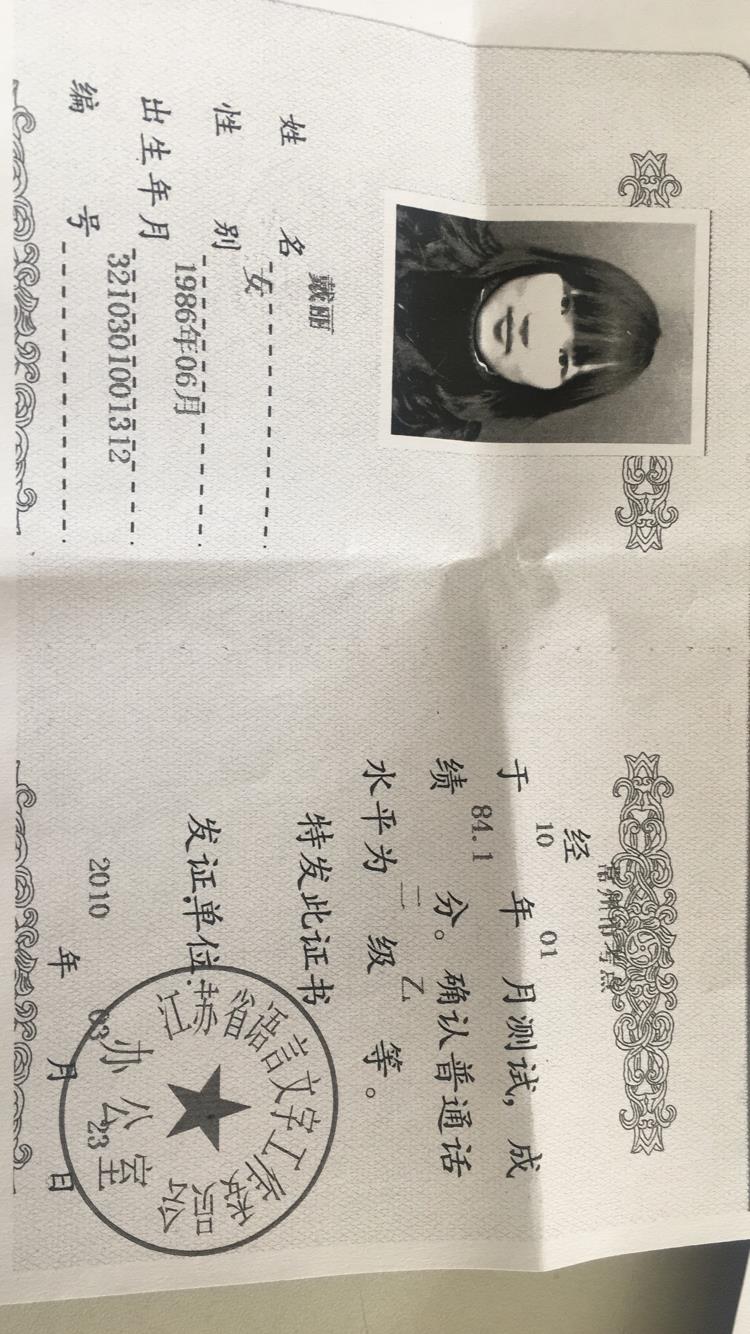 姓 名 戴丽
性 别 女
出生年月 1986年06月
编 号 3210301001312
经 常州市考点
于 10 年 01 月测试，成
绩 84.1 分。确认普通话
水平为 二 级 乙 等。
特发此证书
发证单位：
江苏省语言文字工作委员会
办公室
2010 年 03 月 23 日